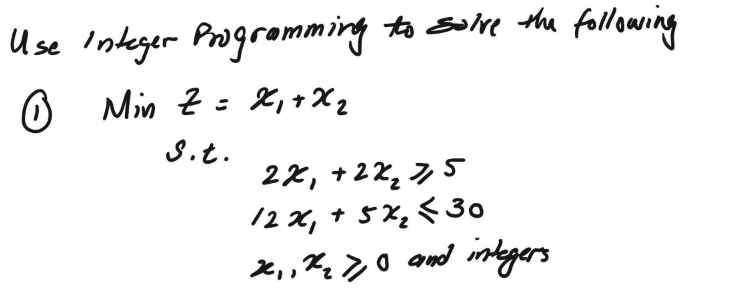 Use Integer Programming to solve the following
① Min Z = x₁ + x₂
s.t.
2x₁ + 2x₂ ≥ 5
12x₁ + 5x₂ ≤ 30
x₁, x₂ ≥ 0 and integers